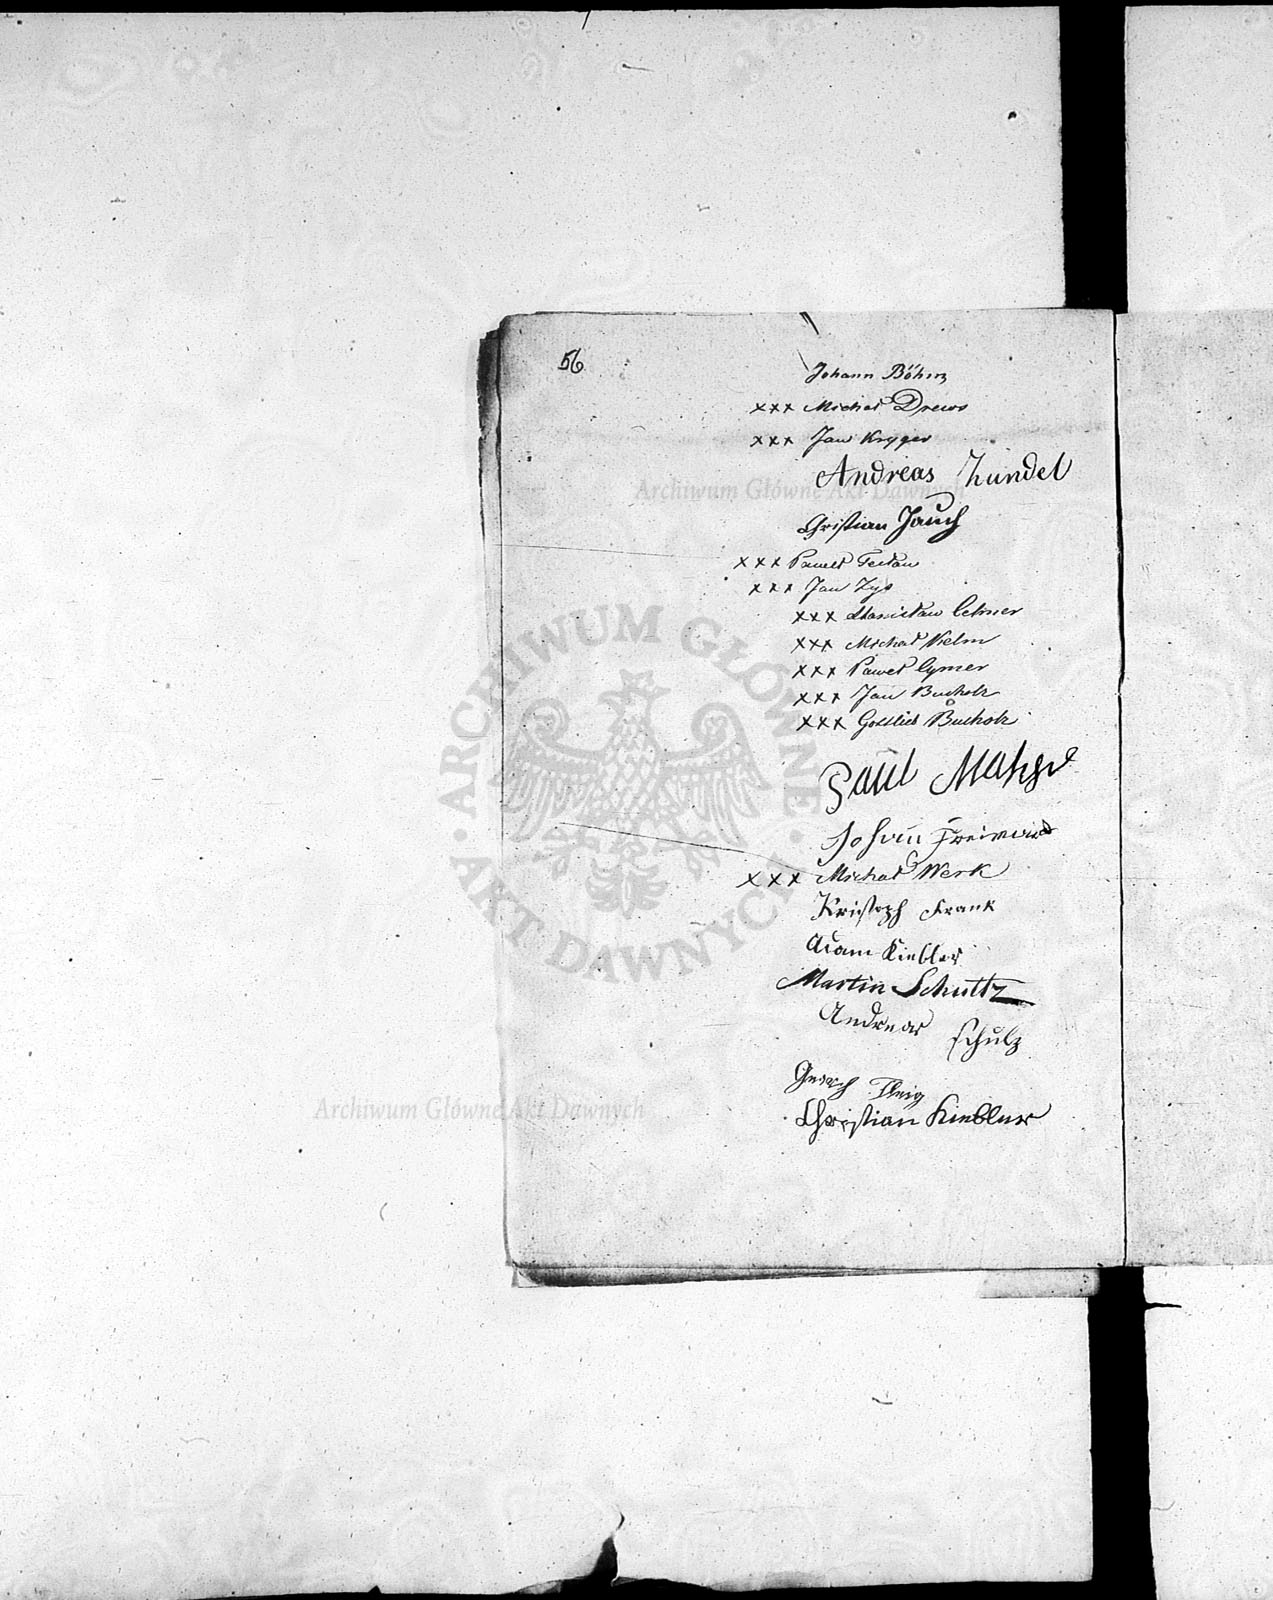 56
Johann Böhm
xxx Michał Drews
xxx Jan Kryger
Andreas Zundel
Archiwum Główne Akt Dawnych
Christian Jauch
xxx Paweł
xxx Jan Zys
xxx Stanisław Celmer
xxx Michał Kielm
xxx Paweł Cymer
xxx Jan Bucholz
xxx Gottlieb Bucholz
ARCHIWUM GŁÓWNE AKT DAWNYCH
Paul
Johan
xxx Michał Werk
Kristoph Frank
Adam Kiebler
Martin Schultz
Andreas
Schulz
Archiwum Główne Akt Dawnych
Christian Kiebler